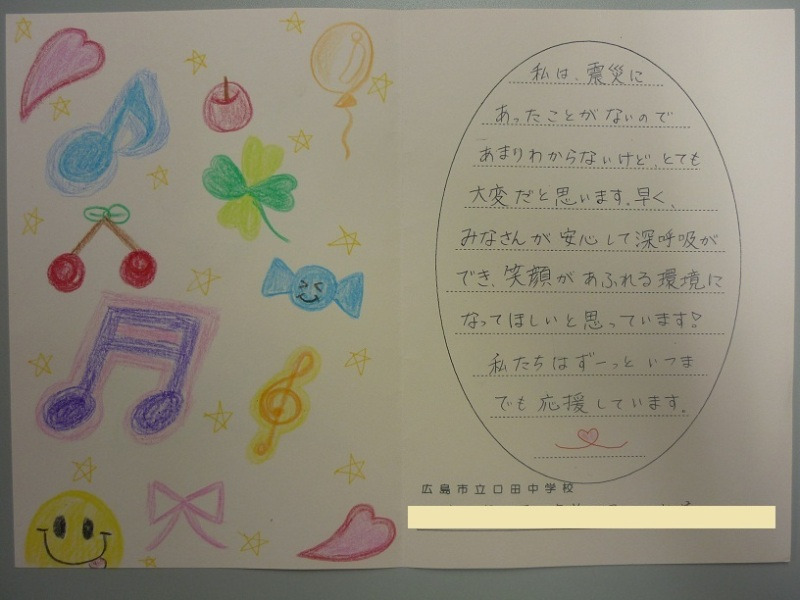 私は、震災に
あったことがないので
あまりわからないけど、とても
大変だと思います。早く、
みなさんが安心して深呼吸が
でき、笑顔があふれる環境に
なってほしいと思っています!
私たちはずーっといつま
でも応援しています。
広島市立口田中学校